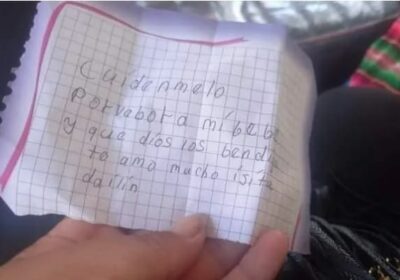 Cuidenmelo
Porvabor a mí bebe
y que dios los bendi
to amo mucho isita
dailin